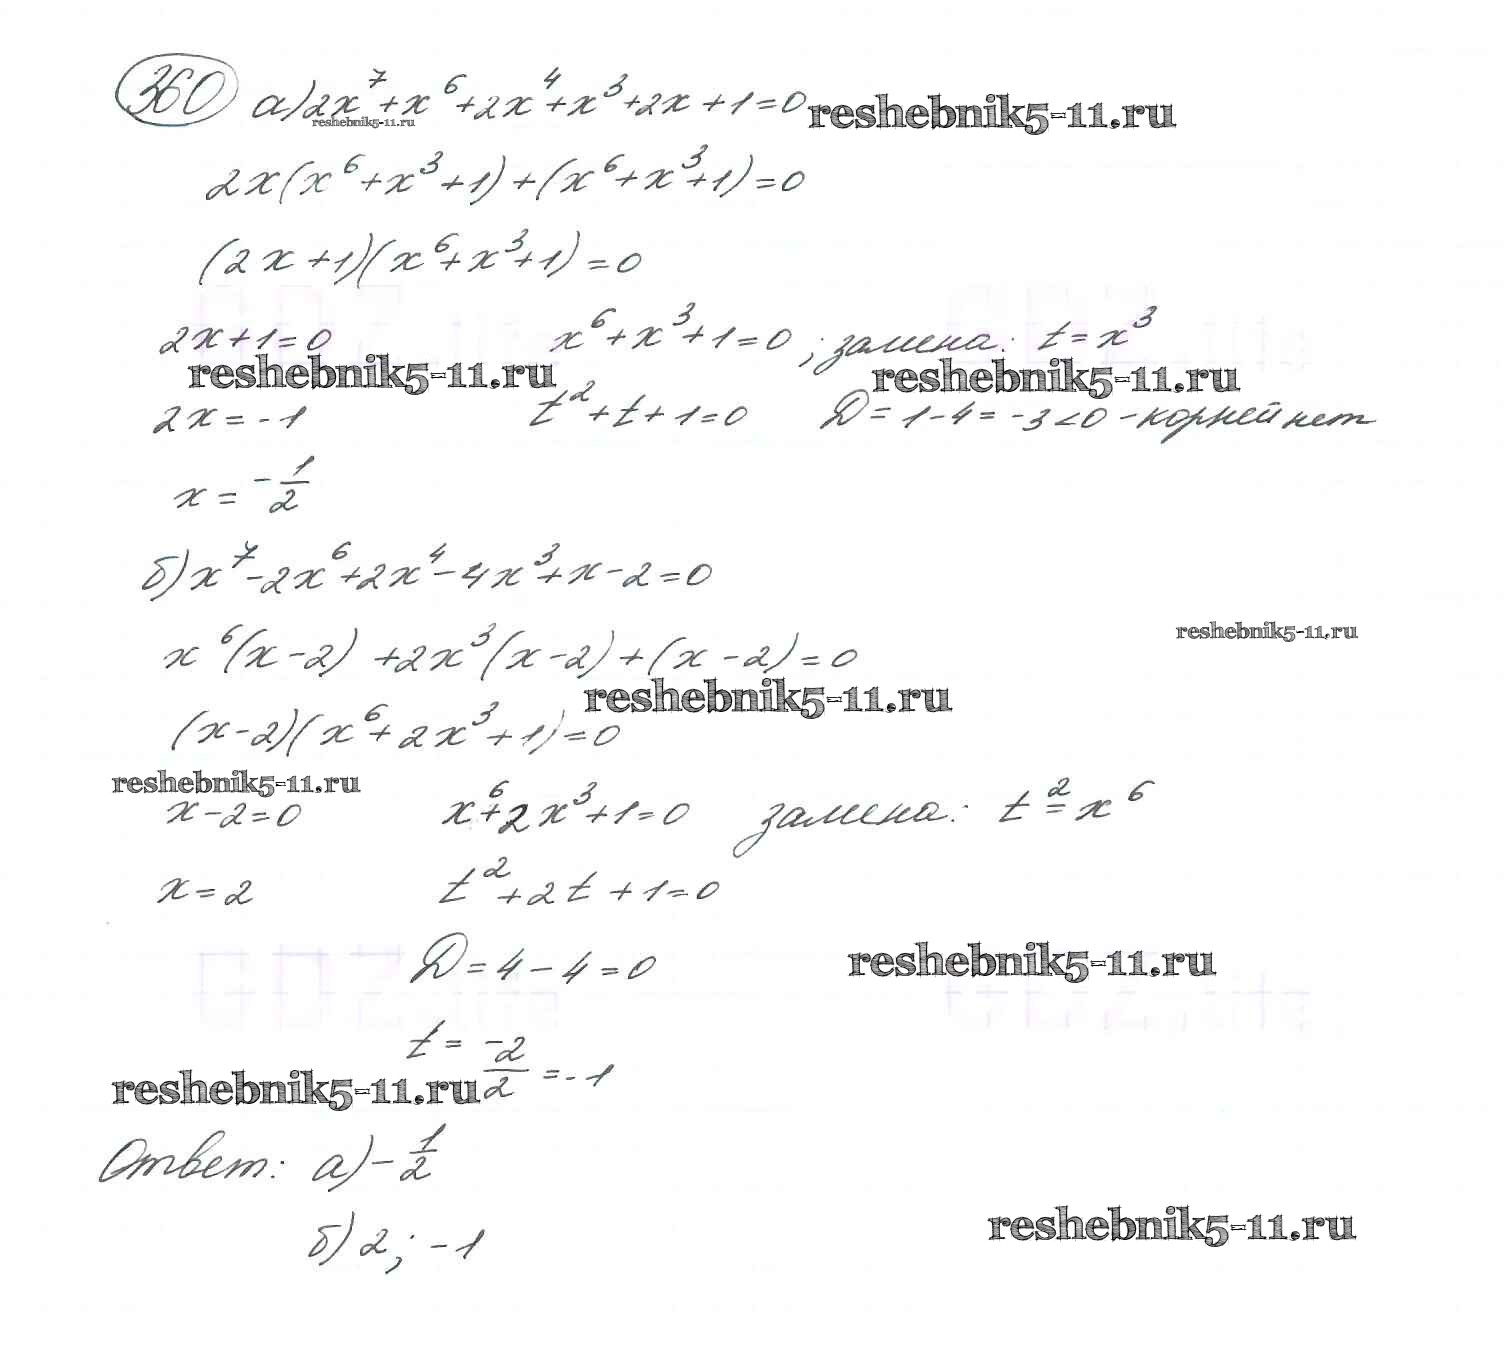 360 а) 2x⁷+x⁶+2x⁴+x³+2x+1=0 reshebnik5-11.ru
reshebnik5-11.ru
2x(x⁶+x³+1)+(x⁶+x³+1)=0
(2x+1)(x⁶+x³+1)=0
2x+1=0 x⁶+x³+1=0 ; замена: t=x³
reshebnik5-11.ru reshebnik5-11.ru
2x=-1 t²+t+1=0 D=1-4=-3<0 -корней нет
x=-1/2
б) x⁷-2x⁶+2x⁴-4x³+x-2=0
reshebnik5-11.ru
x⁶(x-2)+2x³(x-2)+(x-2)=0
reshebnik5-11.ru
(x-2)(x⁶+2x³+1)=0
reshebnik5-11.ru
x-2=0 x⁶+2x³+1=0 замена: t²=x⁶
x=2 t²+2t+1=0
D=4-4=0 reshebnik5-11.ru
t=-2/2=-1
reshebnik5-11.ru
Ответ: а) -1/2
reshebnik5-11.ru
б) 2; -1